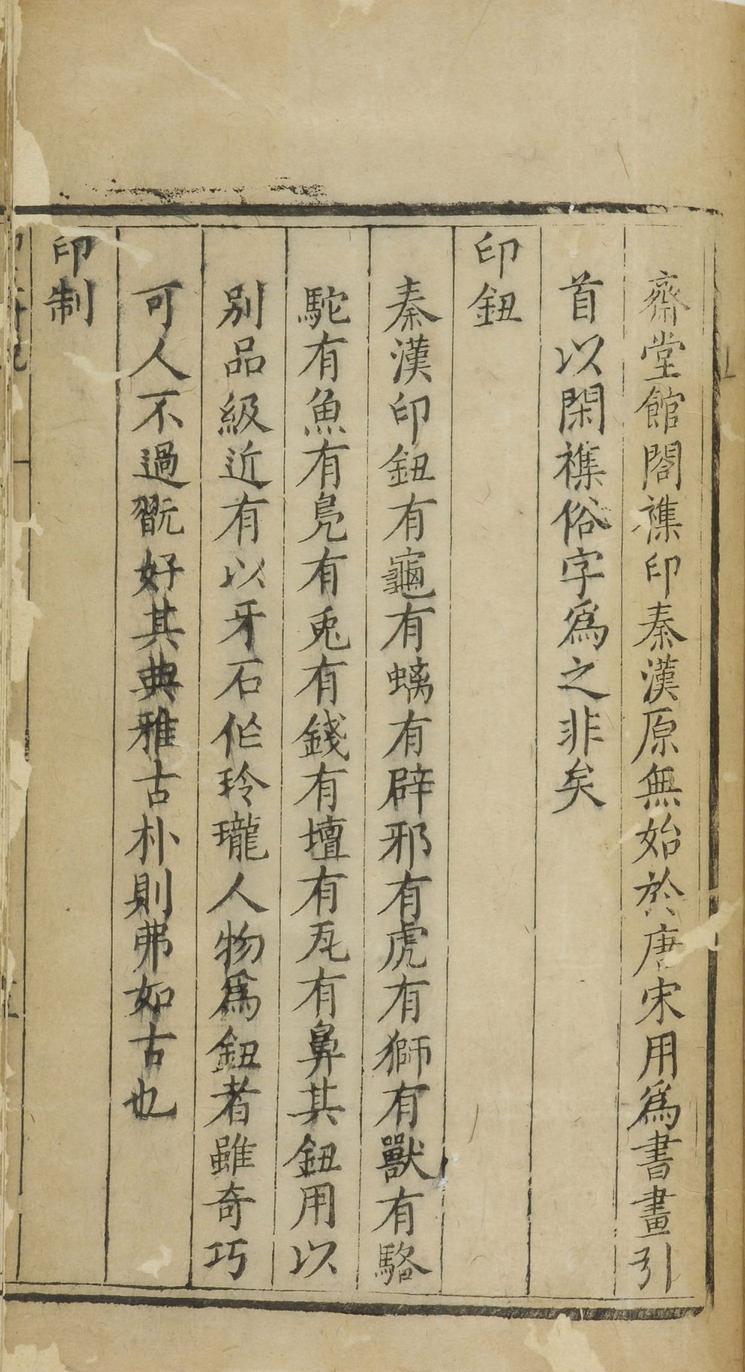 齋堂館閣襍印秦漢原無始於唐宋用爲書畫引
首以閑襍俗字爲之非矣
印鈕
秦漢印鈕有龜有螭有辟邪有虎有獅有獸有駱
駝有魚有鳧有兎有錢有壇有瓦有鼻其鈕用以
別品級近有以牙石作玲瓏人物爲鈕者雖奇巧
可人不過翫好其典雅古朴則弗如古也
印制